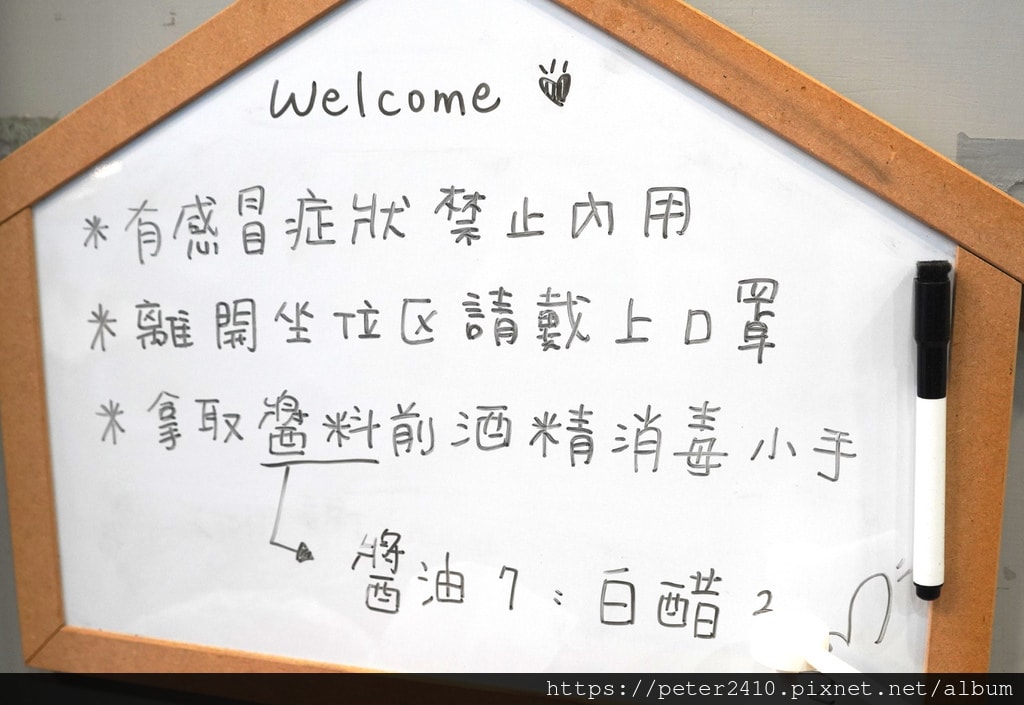 Welcome
*有感冒症狀禁止內用
*離開坐位区請戴上口罩
*拿取醬料前酒精消毒小手
醬油7:白醋2
https://peter2410.pixnet.net/album